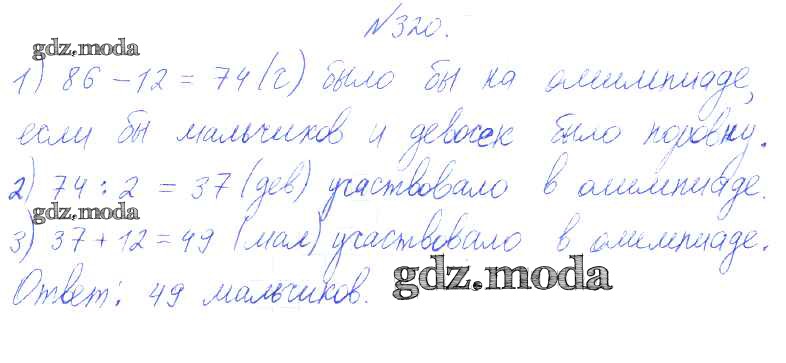 №320.
gdz.moda
1) 86 - 12 = 74 (г) было бы на олимпиаде,
если бы мальчиков и девочек было поровну.
2) 74 : 2 = 37 (дев) участвовало в олимпиаде.
gdz.moda
3) 37 + 12 = 49 (мал) участвовало в олимпиаде.
Ответ: 49 мальчиков.
gdz.moda